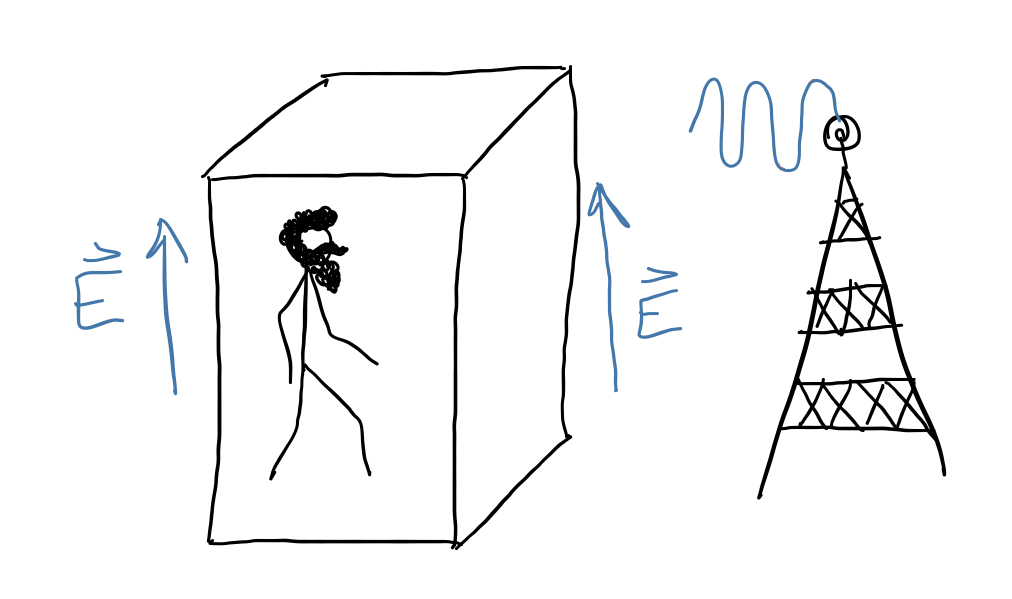 E⃗
E⃗